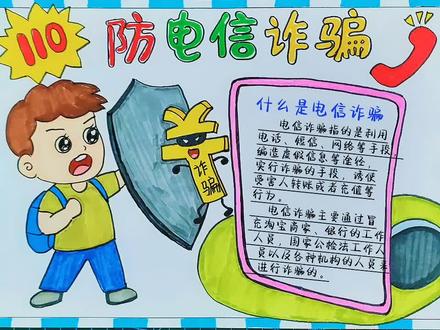 110
防电信诈骗
诈骗
什么是电信诈骗
电信诈骗指的是利用
电话、短信、网络等手段
编造虚假信息等途径,
实行诈骗的手段,诱使
受害人转账或者充值等
行为。
电信诈骗主要通过冒
充淘宝商家、银行的工作
人员,国家公检法工作人
员以及各种机构的人员来
进行诈骗的。